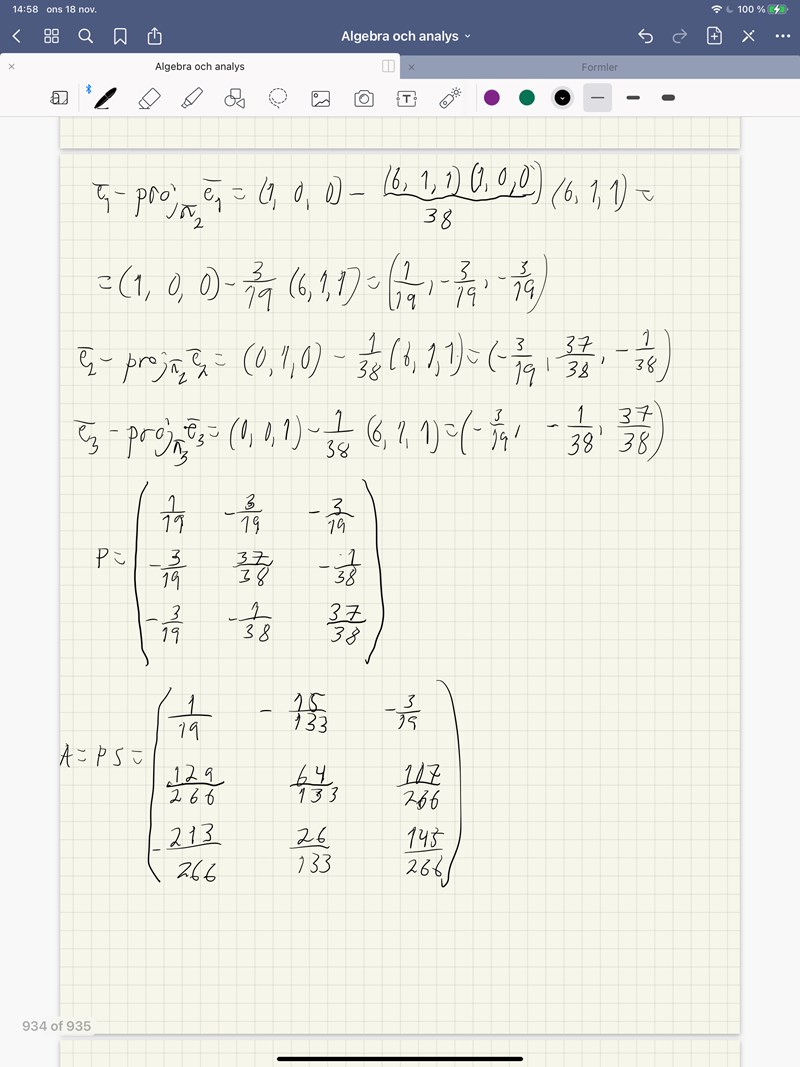 14:58 ons 18 nov. 100 %
Algebra och analys
Algebra och analys Formler
e̅₁ - proj_π̅₂ e̅₁ = (1, 0, 0) - (6, 1, 1)(1, 0, 0)/38 (6, 1, 1) =
= (1, 0, 0) - 3/19 (6, 1, 1) = (1/19, -3/19, -3/19)
e̅₂ - proj_π̅₂ e̅₂ = (0, 1, 0) - 1/38 (6, 1, 1) = (-3/19, 37/38, -1/38)
e̅₃ - proj_π̅₃ e̅₃ = (0, 0, 1) - 1/38 (6, 1, 1) = (-3/19, -1/38, 37/38)
1/19 -3/19 -3/19
P = -3/19 37/38 -1/38
-3/19 -1/38 37/38
1/19 -15/133 -3/19
A = PS = 129/266 64/133 107/266
-213/266 26/133 145/266
934 of 935